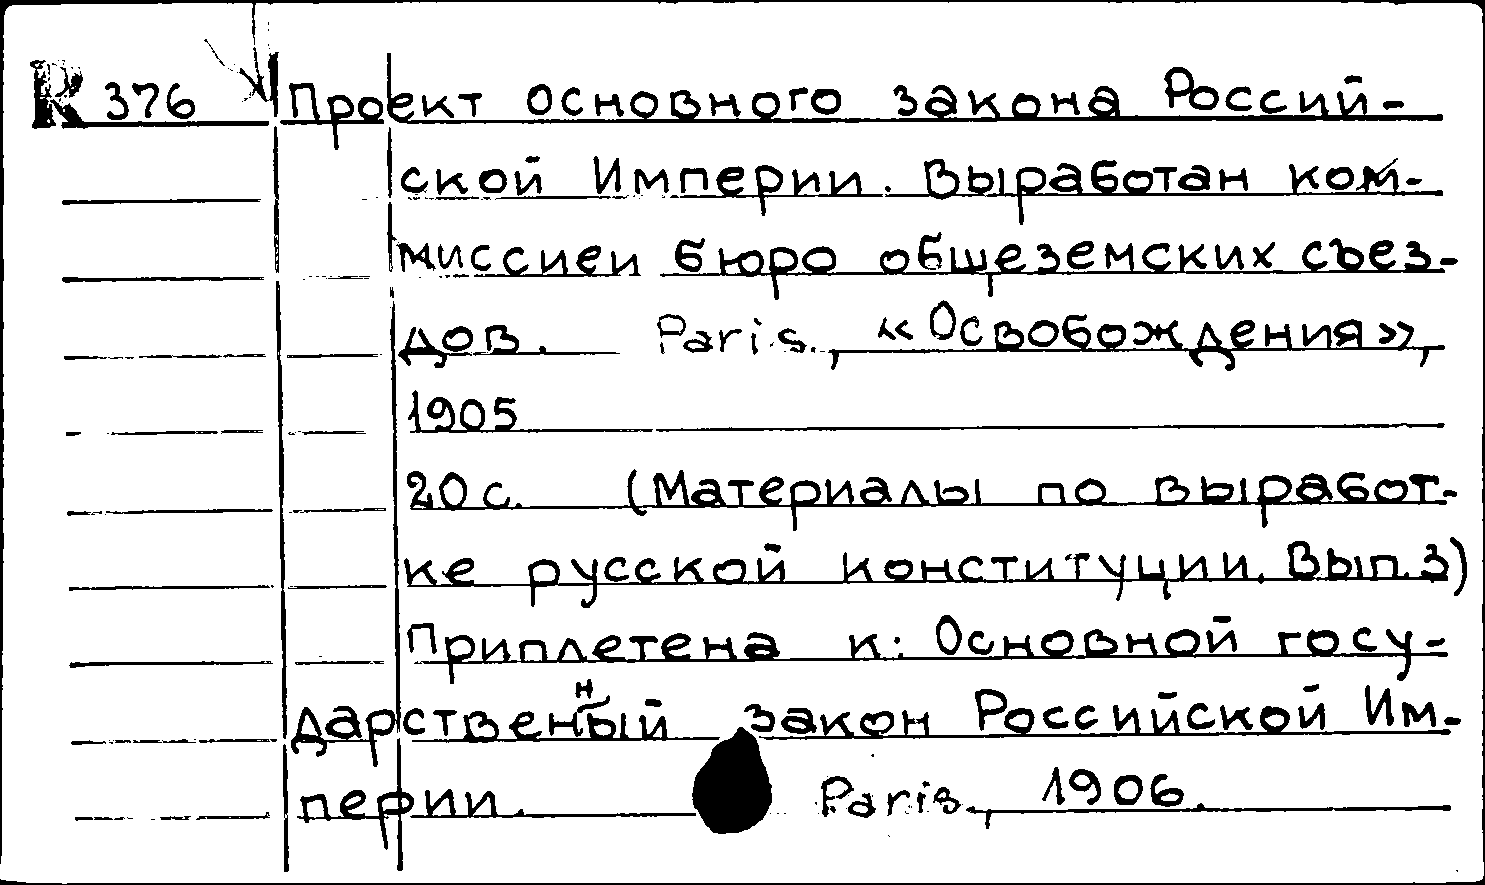 R 376 Проект основного закона Россий-
ской Империи. Выработан ком-
миссиеи бюро общеземских съез-
дов. Paris., «Освобождения»,
1905
20 с. (Материалы по выработ-
ке русской конституции. Вып. 3)
Приплетена к: Основной госу-
дарственный закон Российской Им-
перии. Paris., 1906.